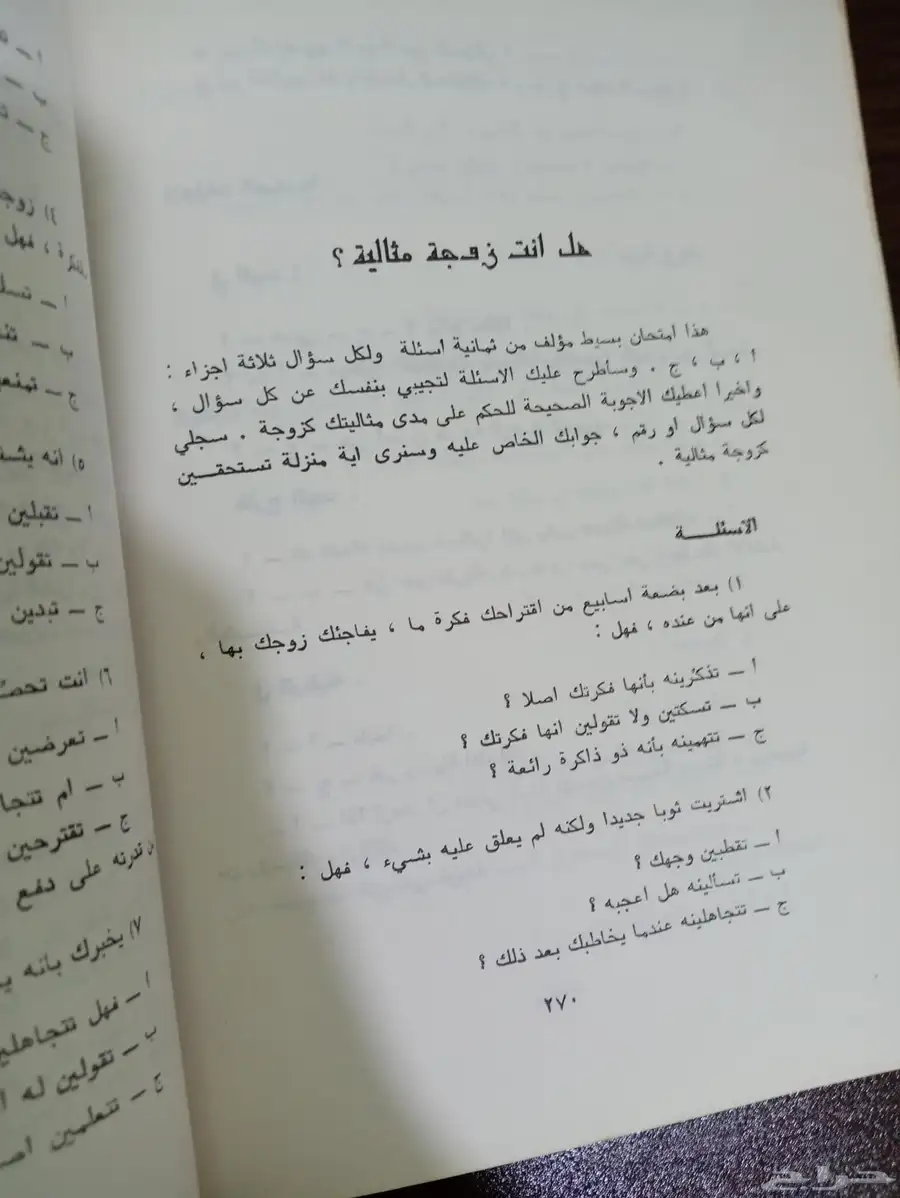 هل انت زوجة مثالية ؟
هذا امتحان بسيط مؤلف من ثمانية اسئلة ولكل سؤال ثلاثة اجزاء :
أ ، ب ، ج . وسأطرح عليك الاسئلة لتجيبي بنفسك عن كل سؤال ،
واخيرا اعطيك الاجوبة الصحيحة للحكم على مدى مثاليتك كزوجة . سجلي
لكل سؤال او رقم ، جوابك الخاص عليه وسنرى اية منزلة تستحقـــين
كزوجة مثالية .
الاسئلـــــة
١) بعد بضعة اسابيع من اقتراحك فكرة ما ، يفاجئك زوجك بها ،
على انها من عنده ، فهل :
أ – تذكرينه بأنها فكرتك اصلا ؟
ب – تسكتين ولا تقولين انها فكرتك ؟
ج – تتهمينه بأنه ذو ذاكرة رائعة ؟
٢) اشتريت ثوبا جديدا ولكنه لم يعلق عليه بشيء ، فهل :
أ – تقطبين وجهك ؟
ب – تسألينه هل اعجبه ؟
ج – تتجاهلينه عندما يخاطبك بعد ذلك ؟
٢٧٠
أ –
ب –
ج –
٤)
، فهل
أ –
ب –
ج –
٥) انه
أ – تقبلين
ب – تقولين
ج – تبدين
٦) انت
أ – تعرضين
ب – ام
ج – تقترحين
على دفع
٧) يخبرك بأنه
أ – فهل
ب – تقولين له
ج – تتعلمين
حراج